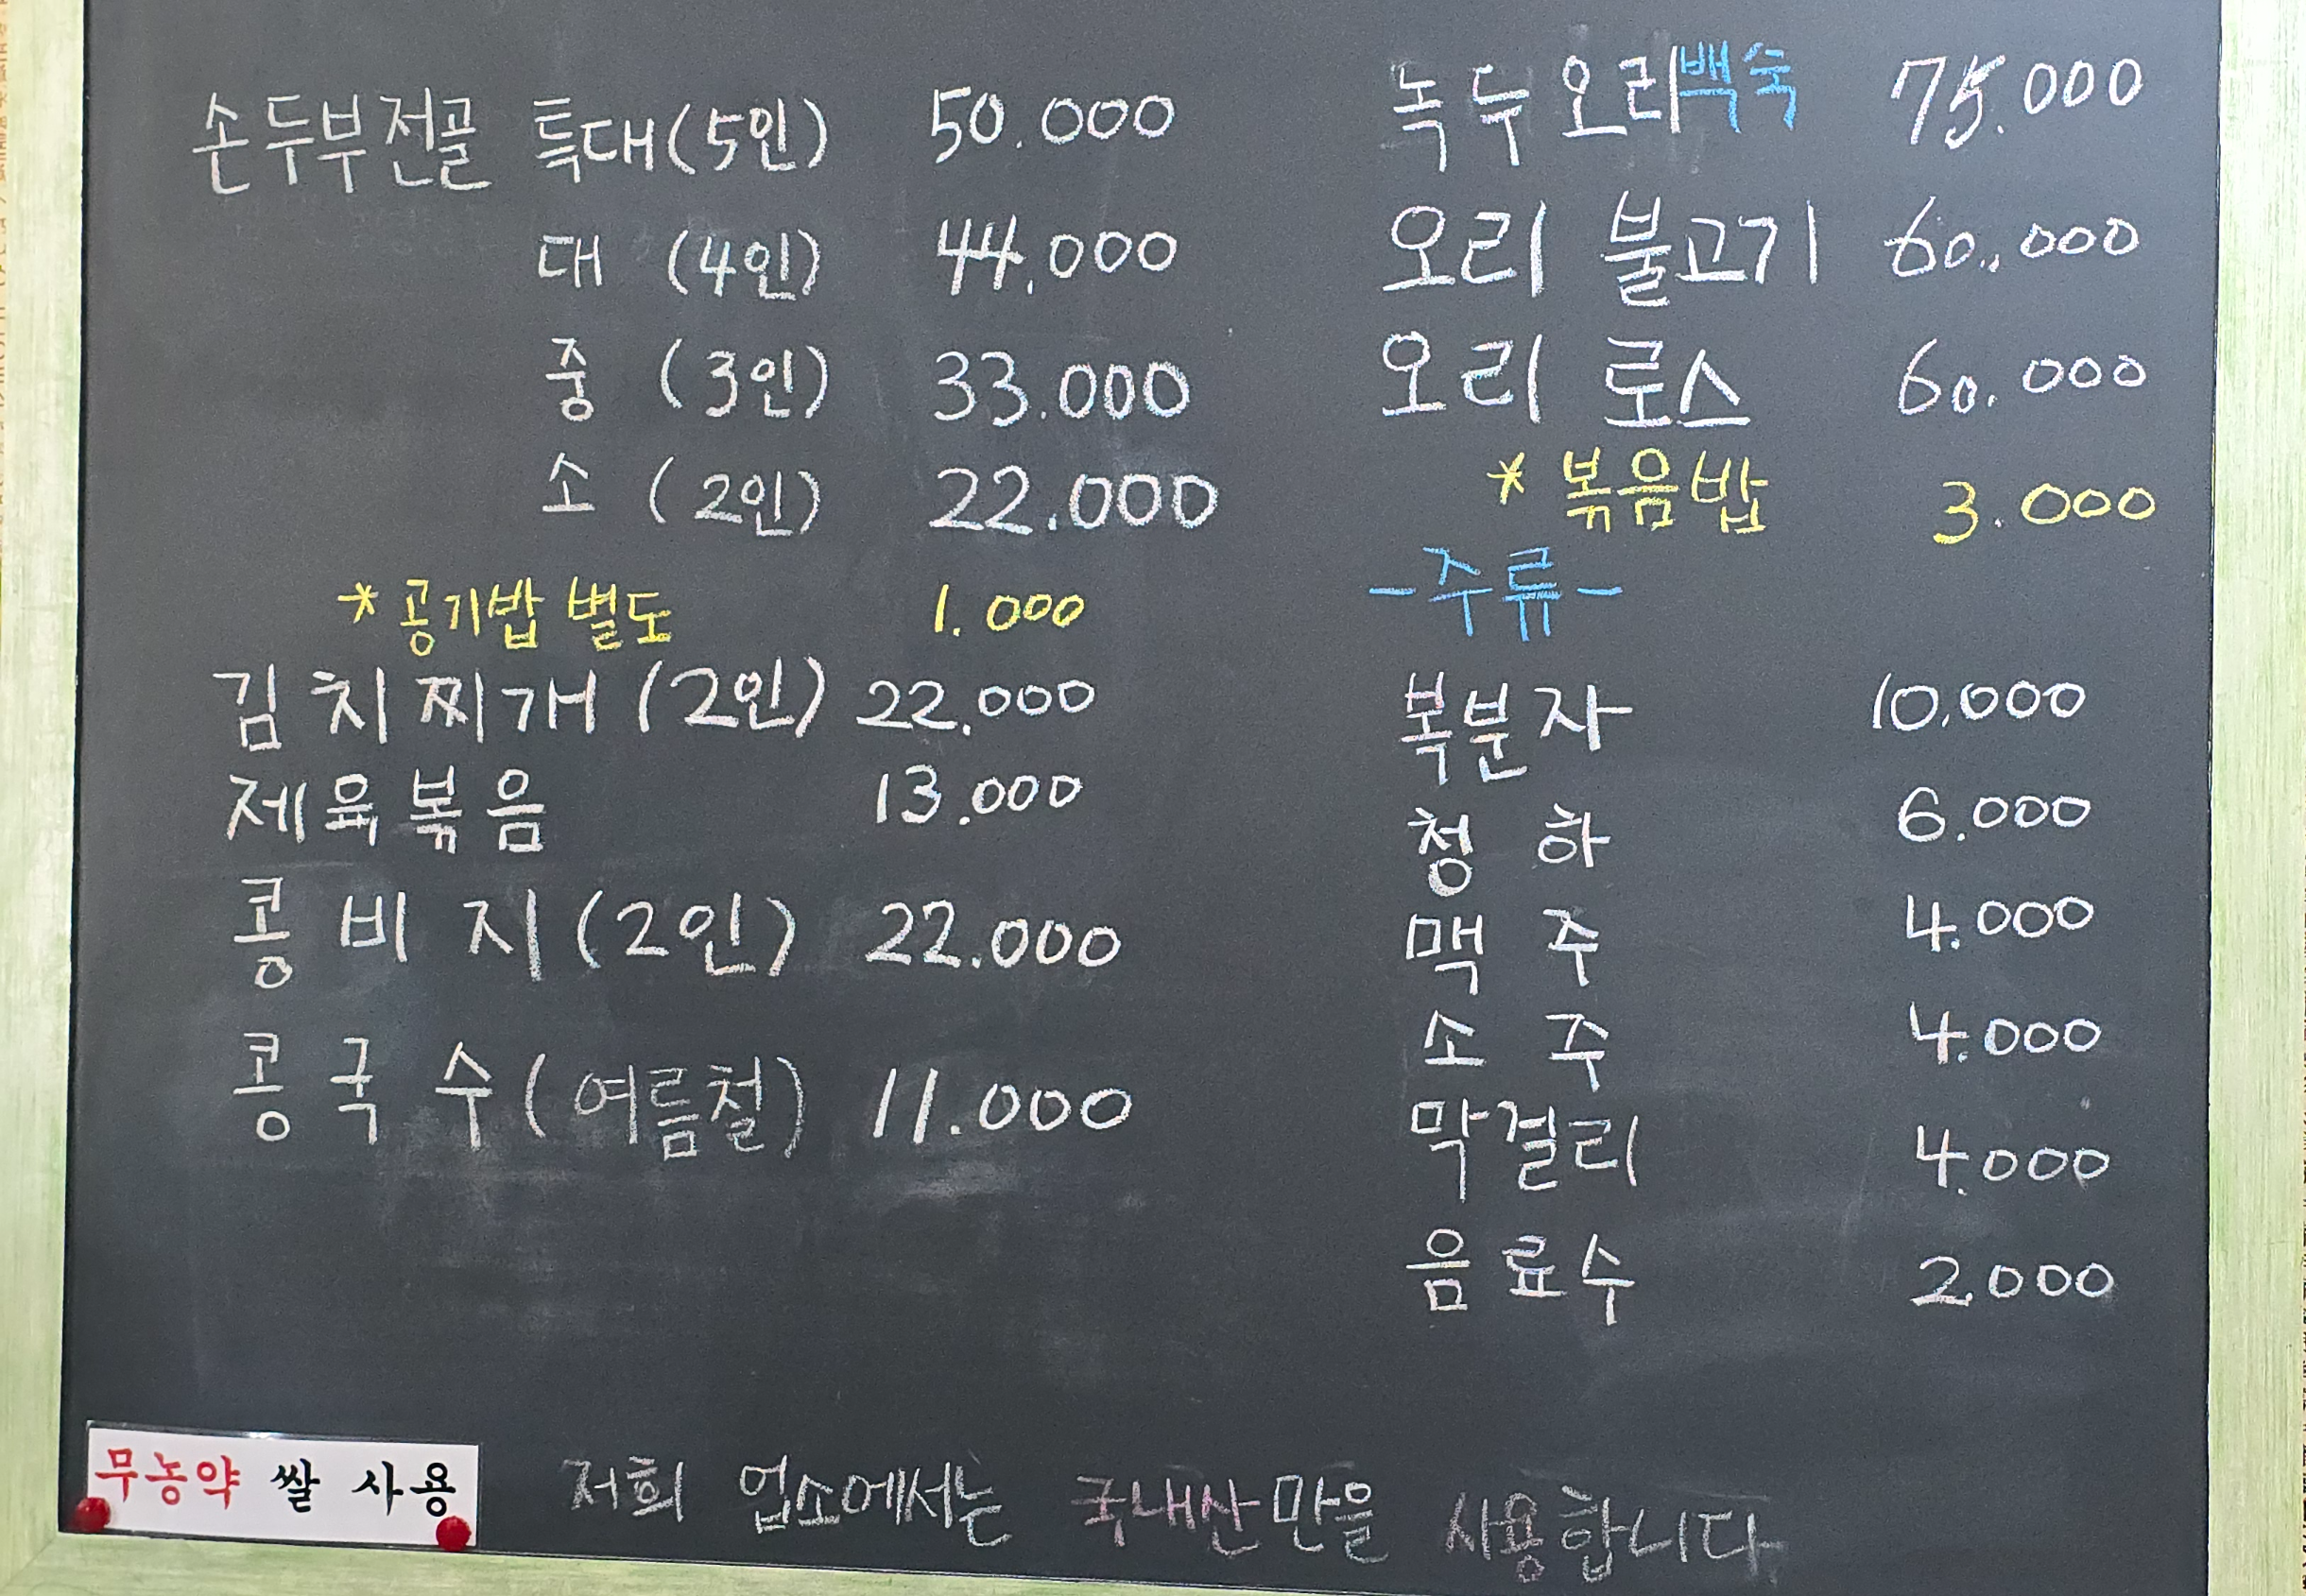 손두부전골 특대(5인) 50.000
대 (4인) 44.000
중 (3인) 33.000
소 (2인) 22.000
* 공기밥 별도 1.000
김치찌개 (2인) 22.000
제육볶음 13.000
콩비지 (2인) 22.000
콩국수 (여름철) 11.000
녹두오리백숙 75.000
오리 불고기 60.000
오리 로스 60.000
* 볶음밥 3.000
-주류-
복분자 10.000
청하 6.000
맥주 4.000
소주 4.000
막걸리 4.000
음료수 2.000
무농약 쌀 사용
저희 업소에서는 국내산만을 사용합니다